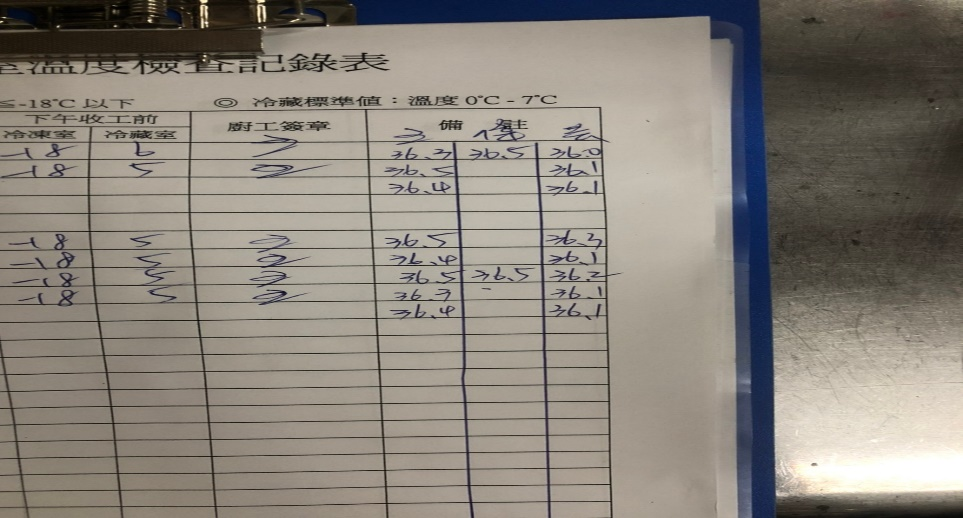 室溫度檢查記錄表
≦-18℃以下 ◎ 冷藏標準值：溫度0℃-7℃
下午收工前 廚工簽章 備註
冷凍室 冷藏室
-18 6 36.3 36.5 36.0
-18 5 36.5 36.1
36.4 36.1
-18 5 36.5 36.3
-18 5 36.4 36.1
-18 5 36.5 36.5 36.2
-18 5 36.3 - 36.1
36.4 36.1